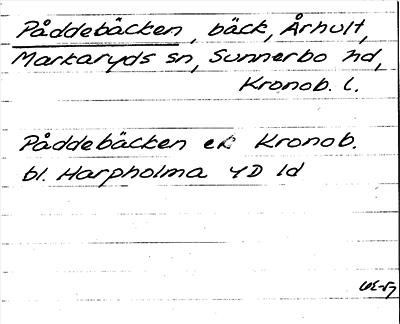 Påddebäcken, bäck, Århult,
Markaryds sn, Sunnerbo hd,
Kronob. l.
Påddebäcken ek Kronob.
bl. Harpholma 4D ld